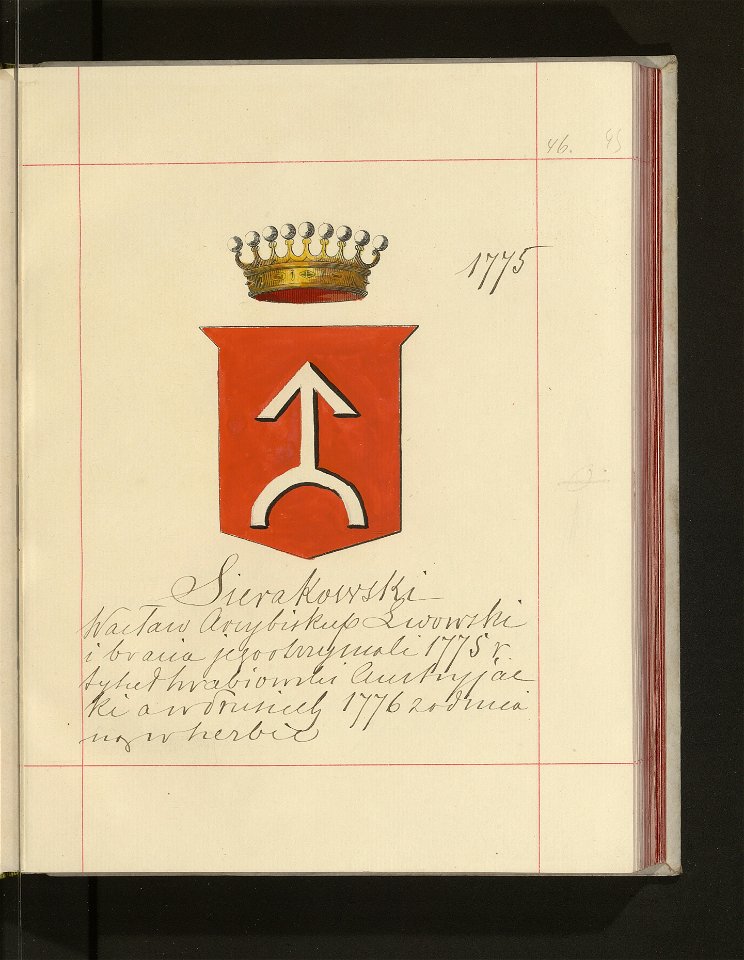 46. 45
1775
Sierakowski
Wacław Arcybiskup Lwowski
i bracia jego otrzymali 1775 r.
tytuł hrabiowski Austryjac
ki a w 1776 z odmia
ną w herbie